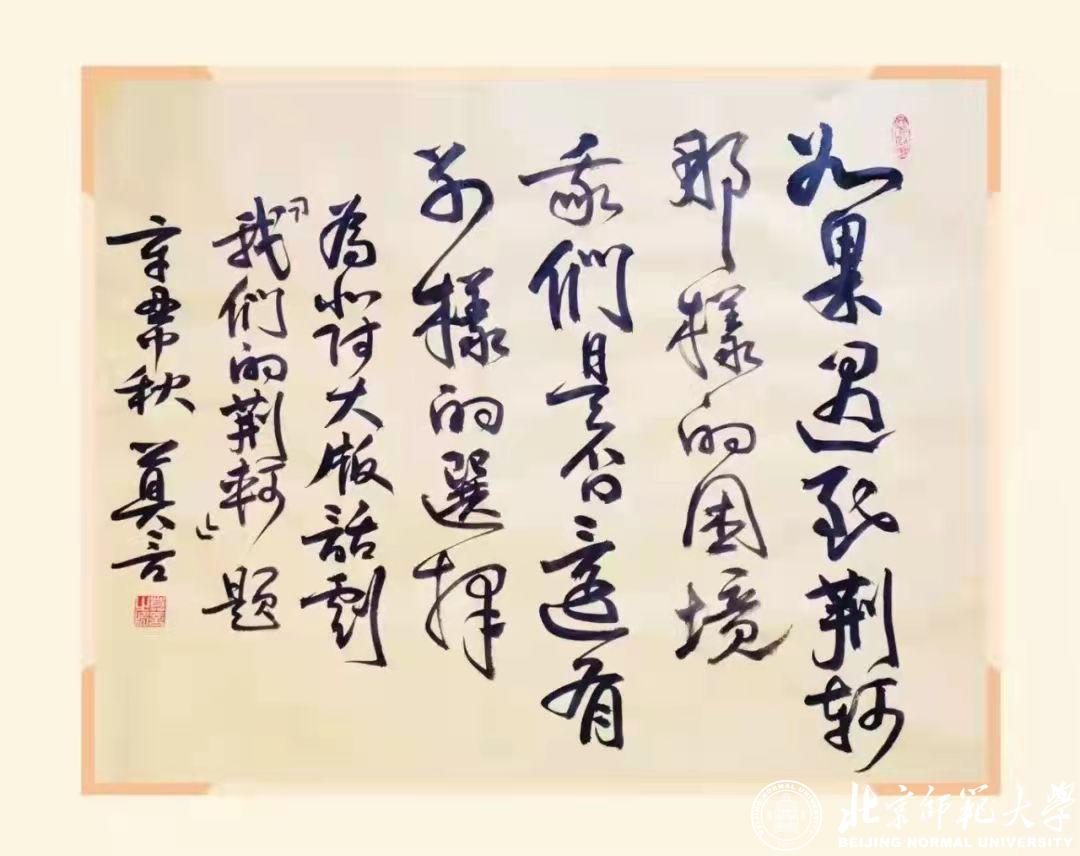 如果遇到荆轲
那樣的困境
我們是否還有
别樣的選择
為北师大版話劇
「我们的荆轲」题
辛丑秋 莫言
北京師範大學
BEIJING NORMAL UNIVERSITY